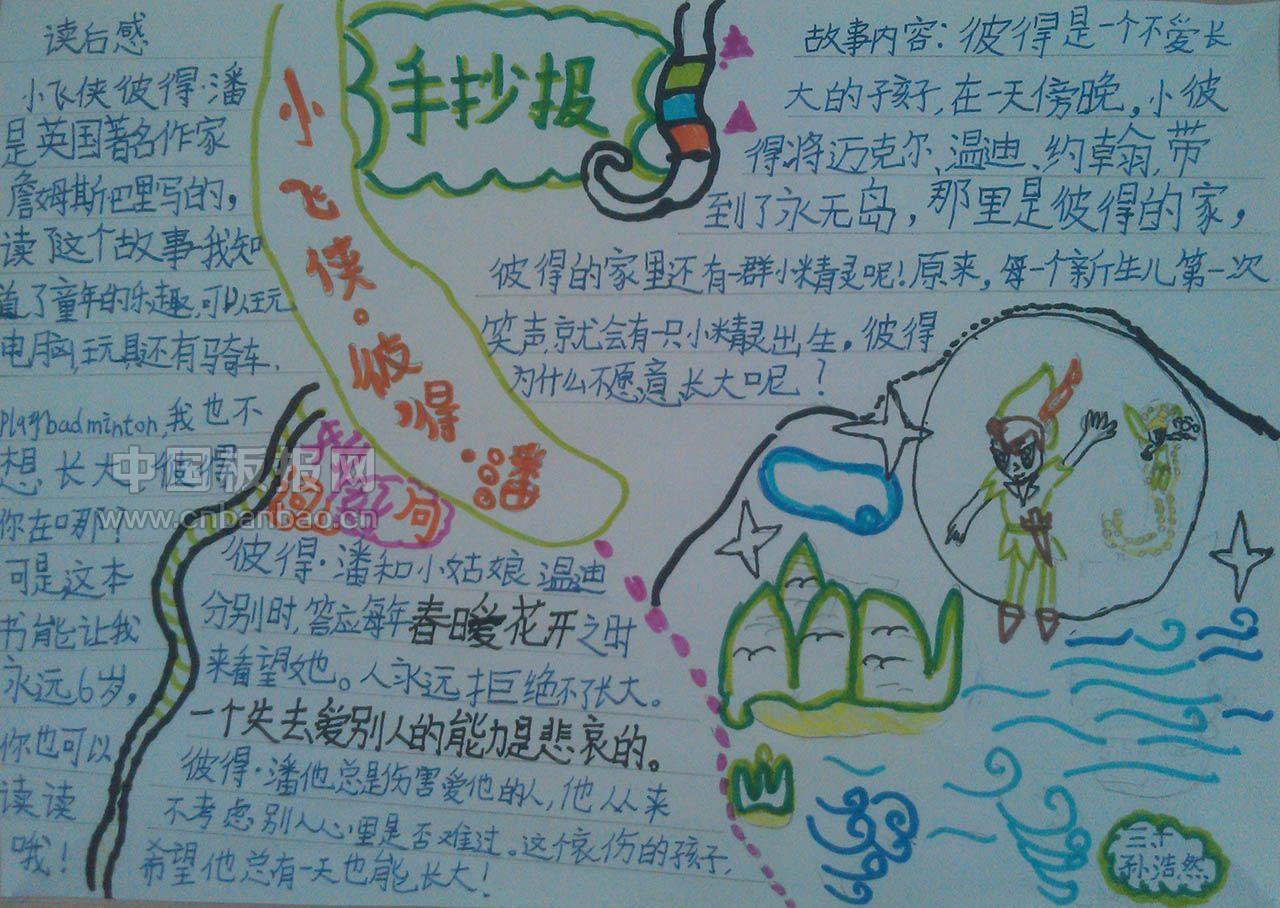 手抄报
小飞侠。彼得·潘
读后感
小飞侠彼得·潘
是英国著名作家
詹姆斯巴里写的,
读了这个故事我知
道了童年的乐趣,可以玩
电脑,玩具还有马奇车,
Playbadminton,我也不
想长大,彼得
你在哪?
可是这本
书能让我
永远6岁,
你也可以
读读
哦!
故事内容:彼得是一个不爱长
大的孩子,在一天傍晚,小彼
得将迈克尔、温迪、约翰,带
到了永无岛,那里是彼得的家,
彼得的家里还有一群小精灵呢!原来,每一个新生儿第一次
笑声,就会有一只小精灵出生,彼得
为什么不愿意长大呢?
句
彼得·潘和小姑娘温迪
分别时,答应每年春日暖花开之时
来看望她。人永远拒绝不了长大。
一个失去爱别人的能力是悲哀的。
彼得·潘他总是伤害爱他的人,他从来
不考虑别人心里是否难过。这个哀伤的孩子,
希望他总有一天也能长大!
三千
孙浩然
中国板报网
www.cnbanbao.cn